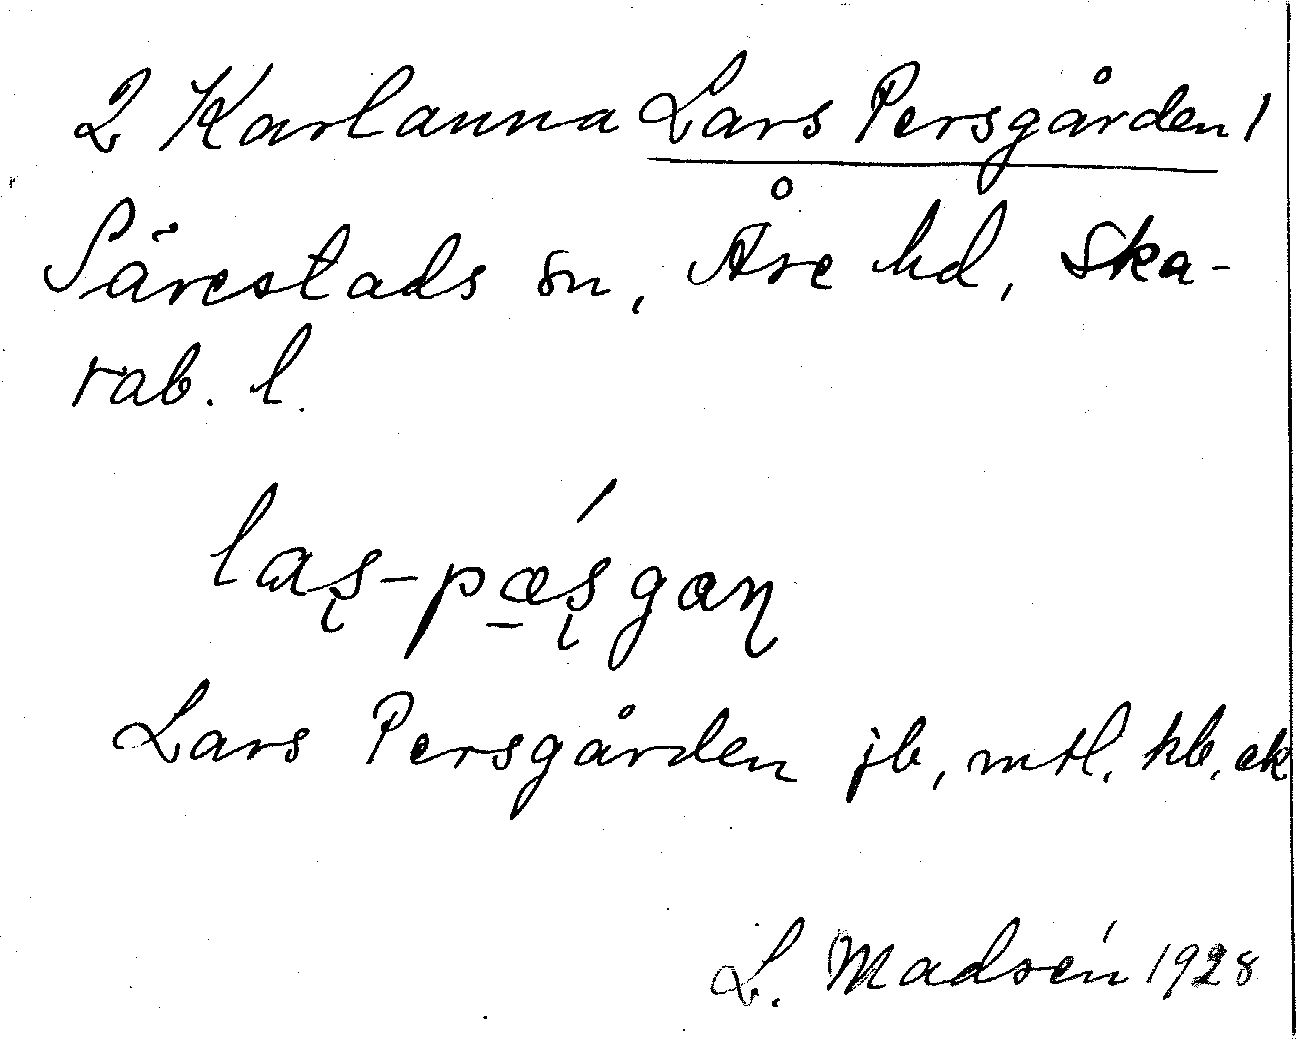 2 Karlanna Lars Persgården 1
Särestads sn, Åre hd, Ska-
rab. l.
laʂ-pæ̠ʂ́gaɳ
Lars Persgården jb, mtl. kb. ek
L. Madsén 1928